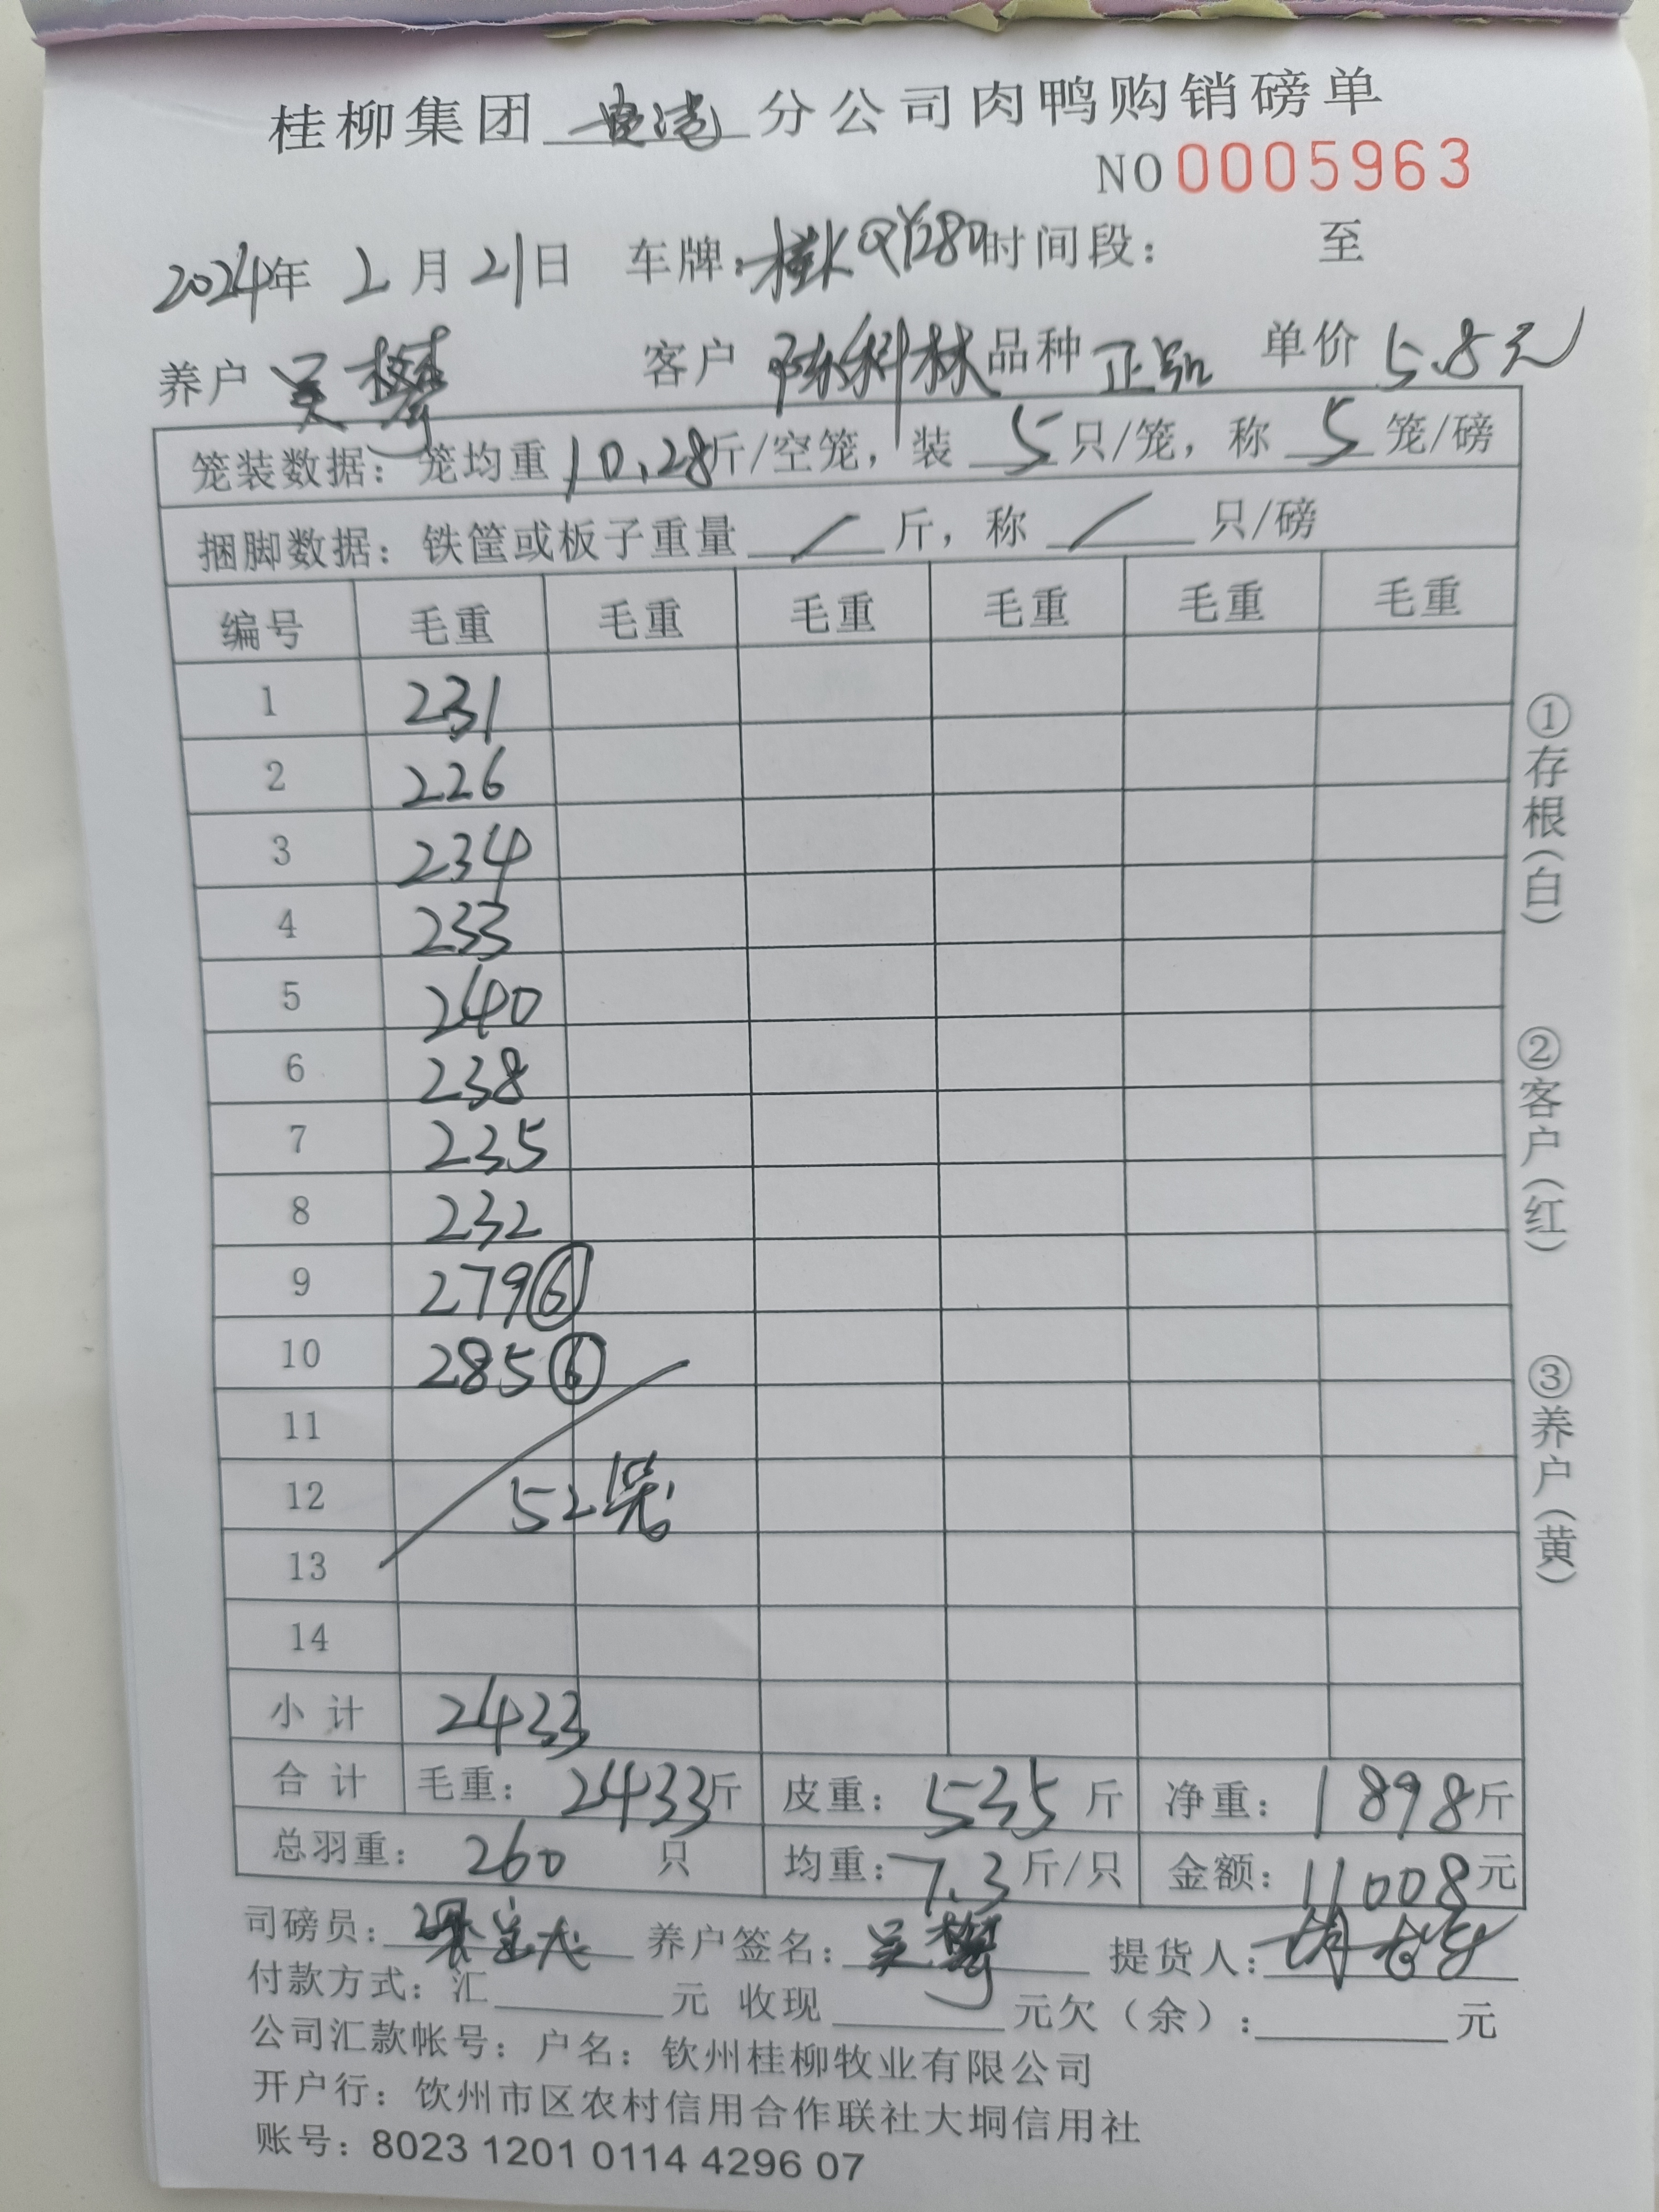 桂柳集团 曲湾 分公司肉鸭购销磅单
NO 0005963
2024年 2月21日 车牌：桂QY280 时间段： 至
养户 吴 客户 陈科林 品种 正品 单价 5.8元
笼装数据：笼均重 10.28斤/空笼，装 5 只/笼，称 5 笼/磅
捆脚数据：铁筐或板子重量 / 斤，称 / 只/磅
编号 毛重 毛重 毛重 毛重 毛重 毛重
1 231
2 226
3 234
4 233
5 240
6 238
7 235
8 232
9 279⑥
10 285⑥
11
12 52笼
13
14
小计 2433
合计 毛重：2433斤 皮重：535斤 净重：1898斤
总羽重：260 只 均重：7.3斤/只 金额：11008元
司磅员： 养户签名：吴 提货人：
付款方式：汇 元 收现 元欠（余）： 元
公司汇款帐号：户名：钦州桂柳牧业有限公司
开户行：饮州市区农村信用合作联社大垌信用社
账号：8023 1201 0114 4296 07
①存根（白）
②客户（红）
③养户（黄）